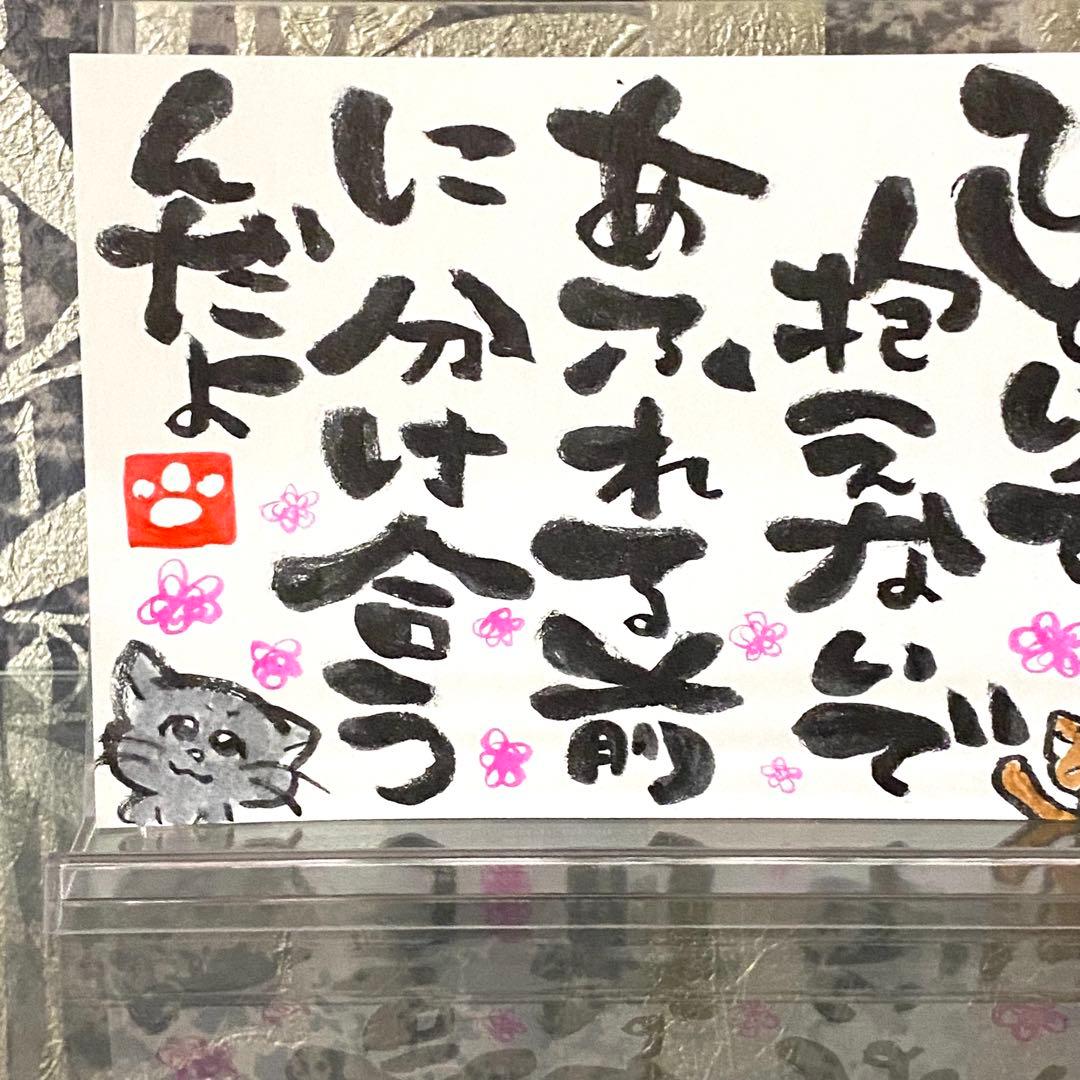 ひとりで
抱えないで
あふれる前
に分け合う
んだよ